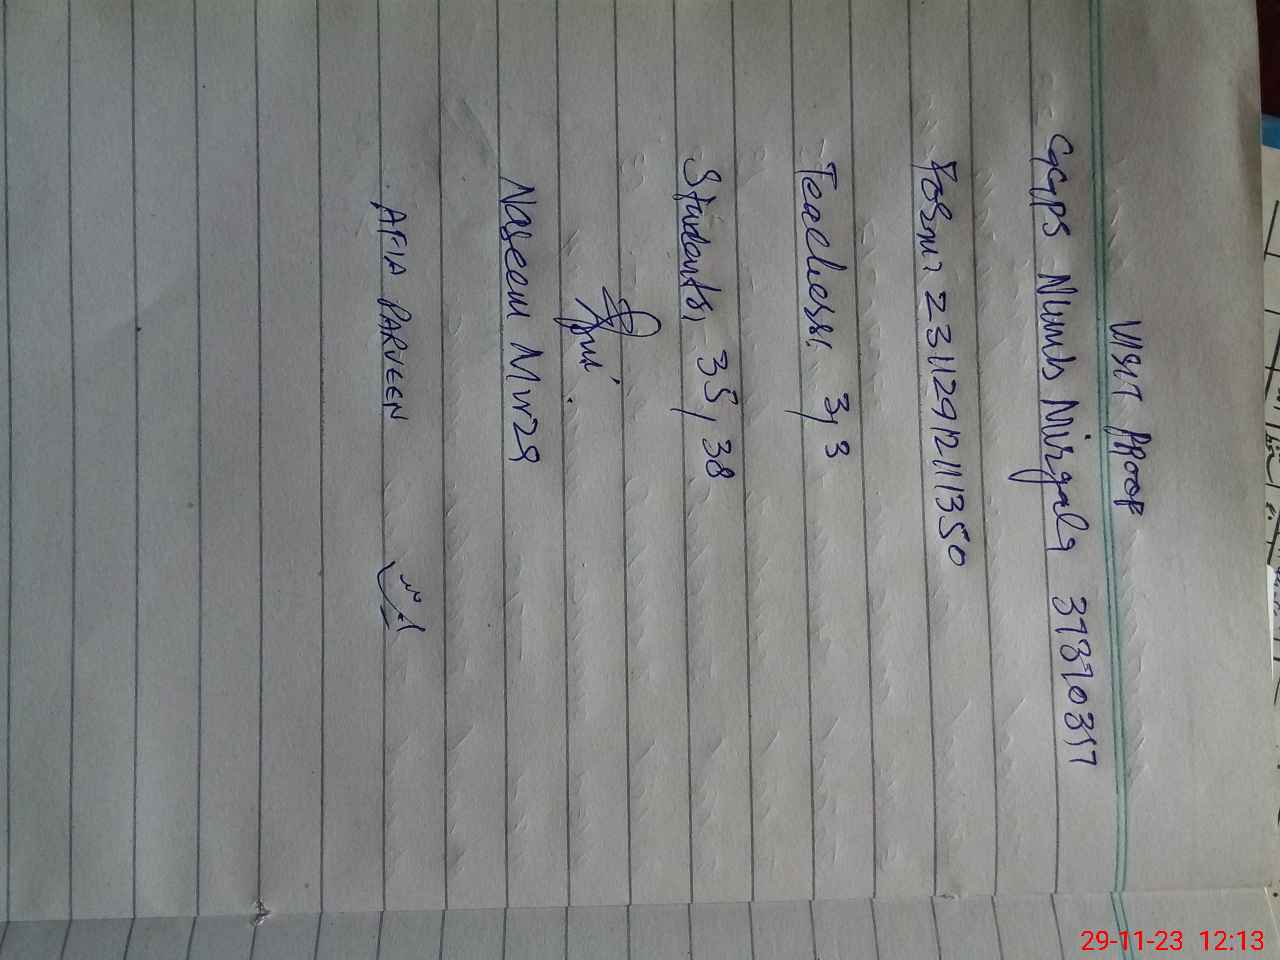 VISIT PROOF
GGPS Numb Mirgala 37370357
Form: 231129121111350
Teachers: 3, 3
Students: 35, 38
Naseem Mirza
AFIA PARVEEN
29-11-23 12:13